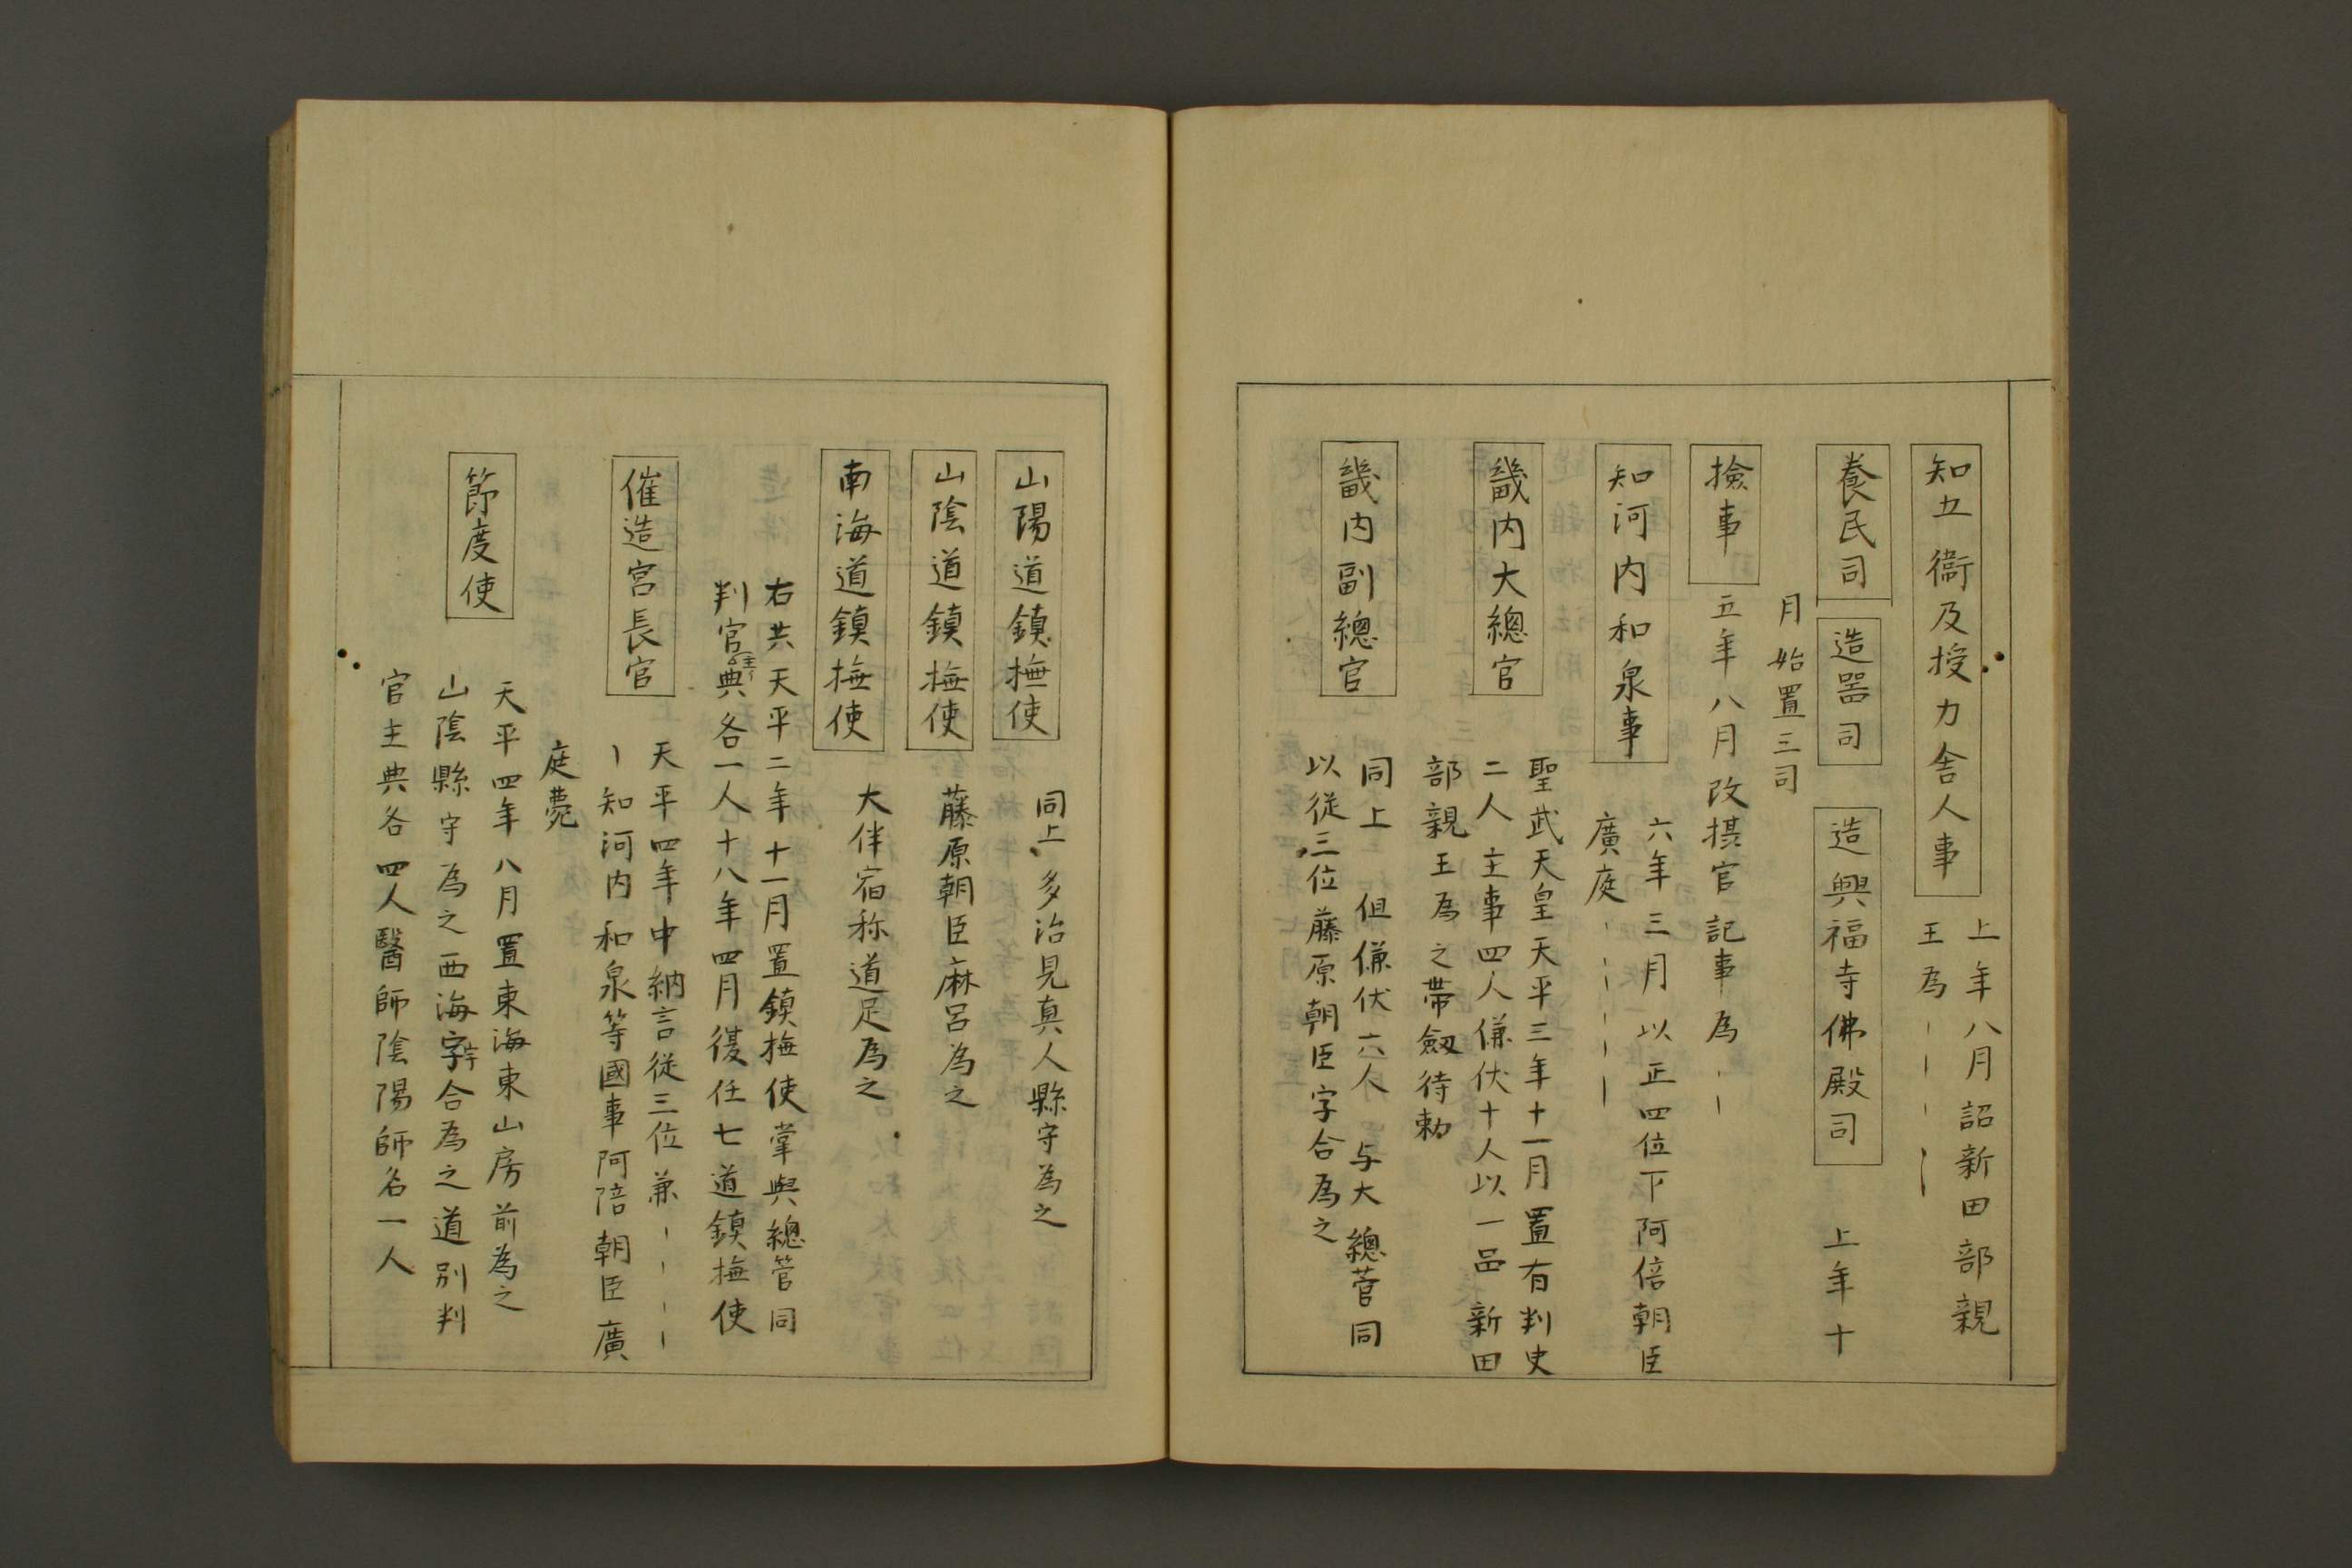 知五衞及授力舎人事
上年八月詔新田部親
王為｜｜｜｜
養民司 造器司 造興福寺佛殿司 上年十
月始置三司
撿事 五年八月改摂官記事為｜｜
知河内和泉事 六年三月以正四位下阿倍朝臣
廣庭｜｜｜｜｜
畿内大總官 聖武天皇天平三年十一月置有判史
二人主事四人傔伏十人以一品新田
部親王為之帯劔待勅
畿内副總官 同上 但傔伏六人 与大總菅同
以從三位藤原朝臣字合為之
山陽道鎮撫使 同上多治見真人縣守為之
山陰道鎮撫使 藤原朝臣麻呂為之
南海道鎮撫使 大伴宿称道足為之
右共天平二年十一月置鎮撫使掌與總管同
判官主典各一人十八年四月復任七道鎮撫使
催造宮長官 天平四年中納言従三位兼｜｜｜｜
｜知河内和泉等國事阿陪朝臣廣
庭薨
節度使 天平四年八月置東海東山房前為之
山陰縣守為之西海字合為之道別判
官主典各四人醫師陰陽師名一人